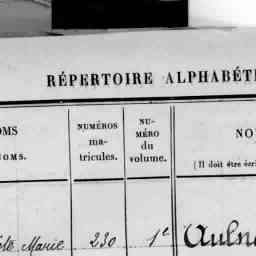 RÉPERTOIRE ALPHABÉT
OMS
OMS.
NUMÉROS
ma-
tricules.
NU-
MÉRO
du
volume.
NO
(Il doit être écri
Marie 230 1e Auln